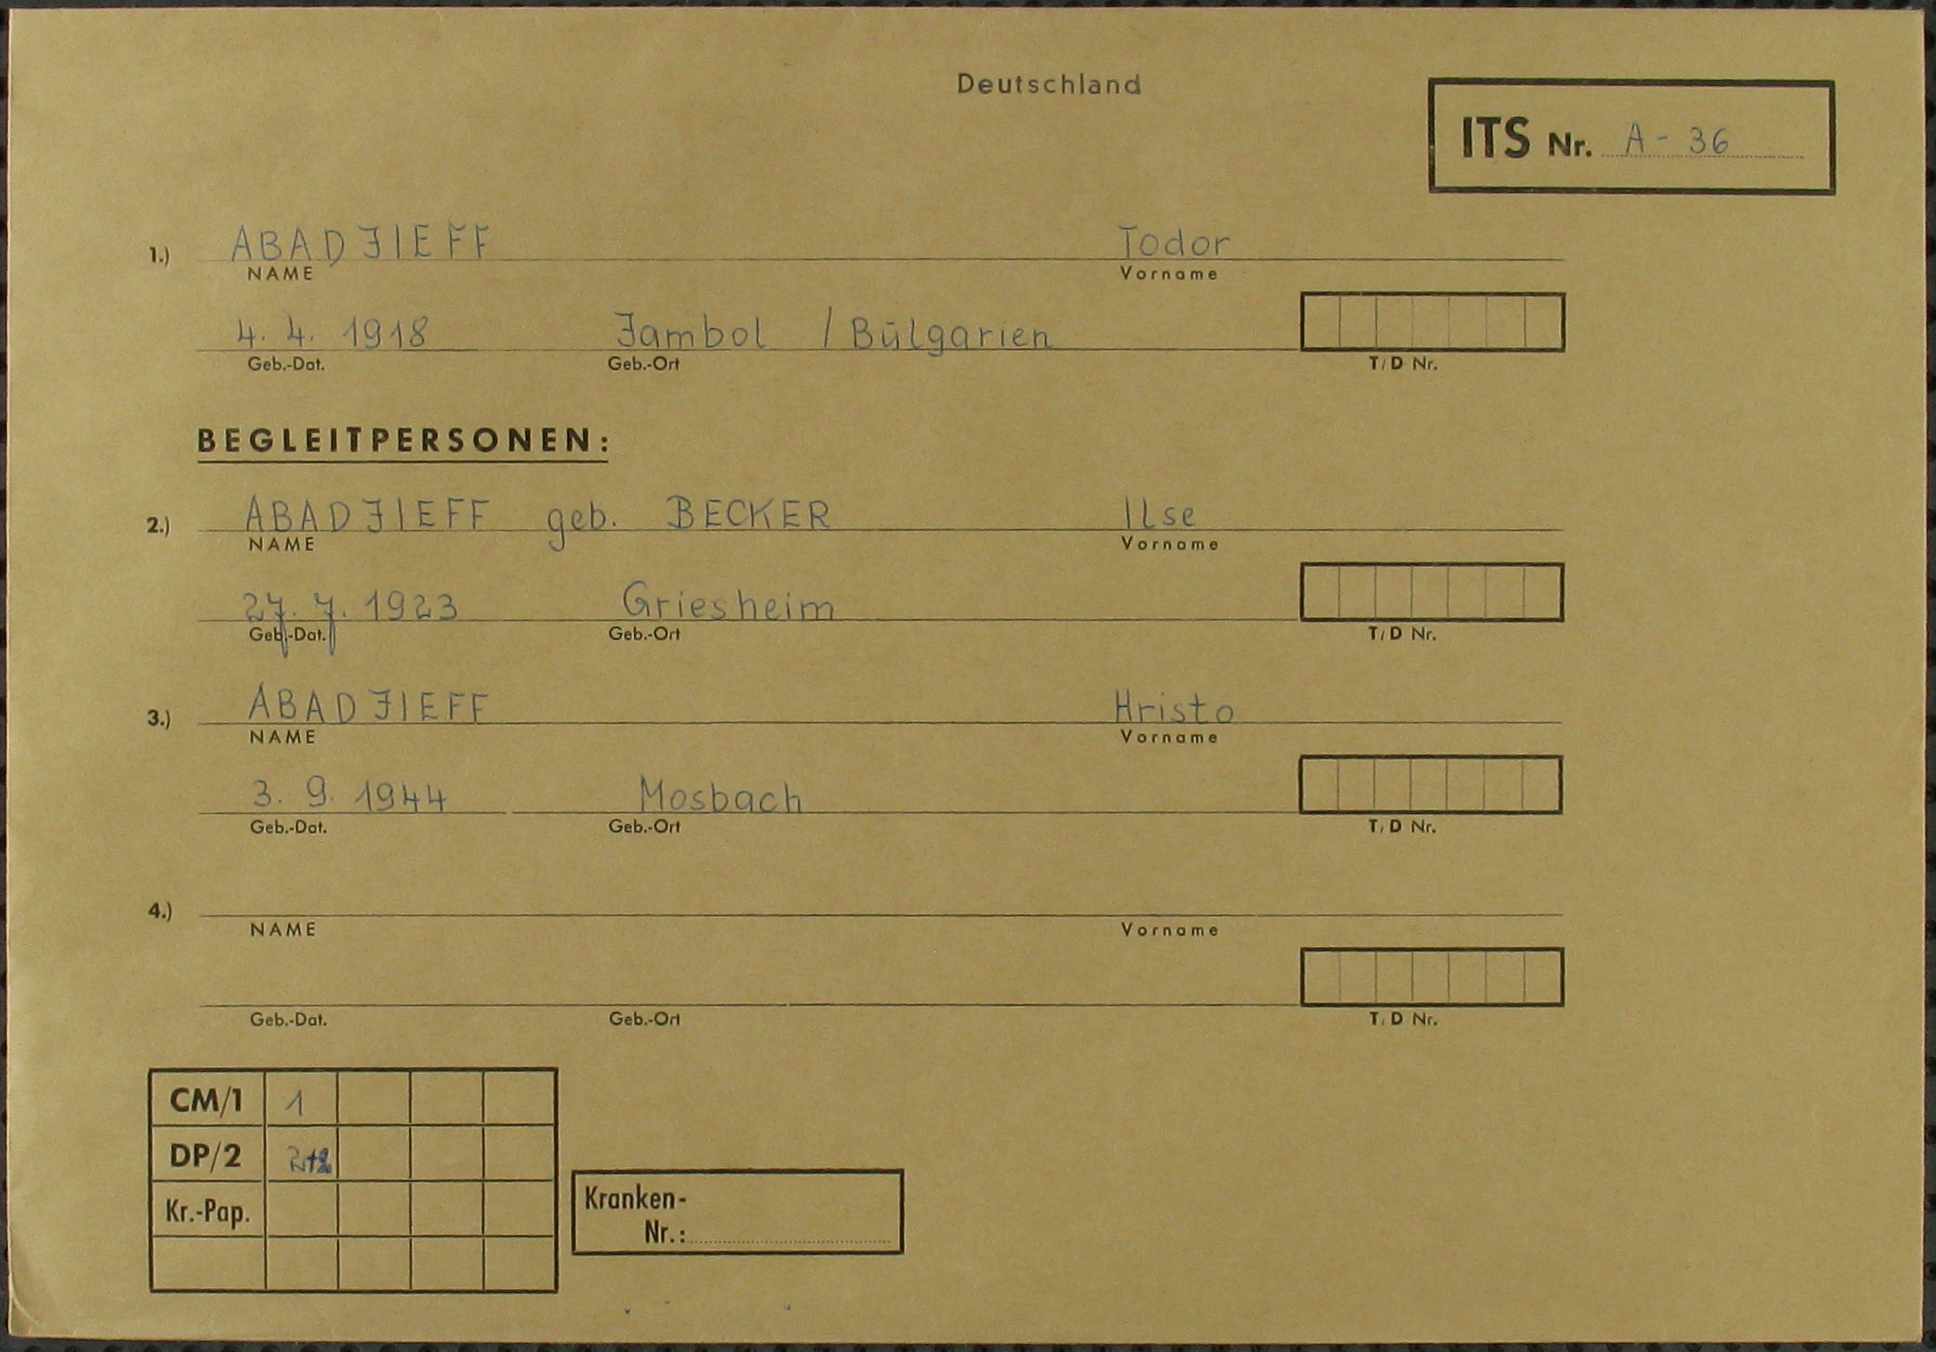 Deutschland
ITS Nr. A - 36
1.) ABADJIEFF Todor
NAME Vorname
4. 4. 1918 Jambol / Bŭlgarien
Geb.-Dat. Geb.-Ort T/D Nr.
BEGLEITPERSONEN:
2.) ABADJIEFF geb. BECKER Ilse
NAME Vorname
27. 7. 1923 Griesheim
Geb.-Dat. Geb.-Ort T/D Nr.
3.) ABADJIEFF Hristo
NAME Vorname
3. 9. 1944 Mosbach
Geb.-Dat. Geb.-Ort T/D Nr.
4.)
NAME Vorname
Geb.-Dat. Geb.-Ort T/D Nr.
CM/1 1
DP/2
Kr.-Pap.
Kranken-
Nr.: